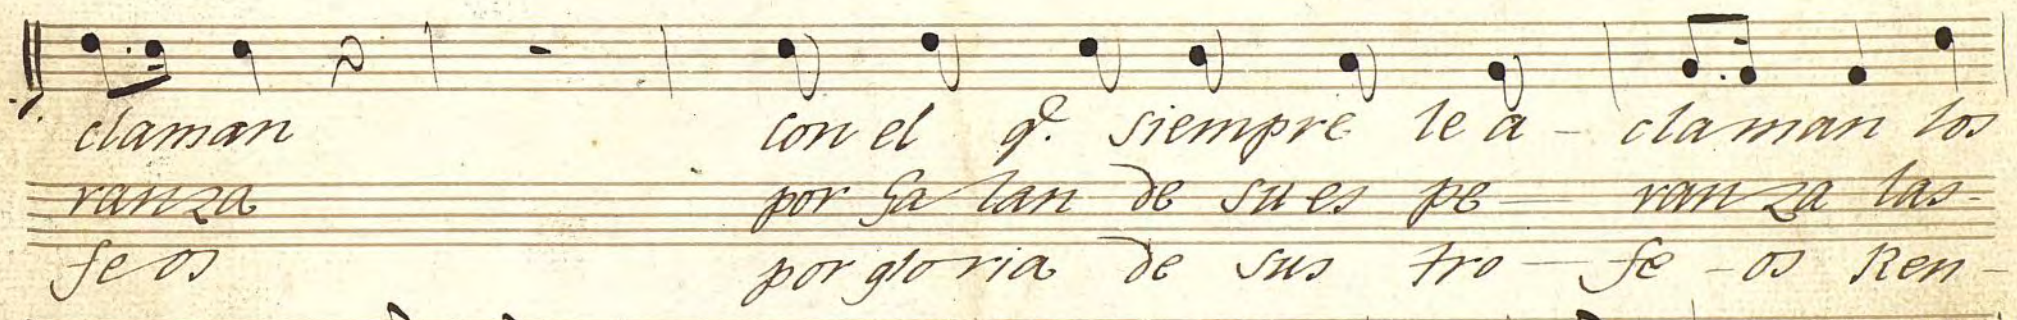 claman con el q.e siempre le a - claman los
ranza por Galan de su es pe - ranza las -
feos por gloria de sus tro - fe - os Ren -